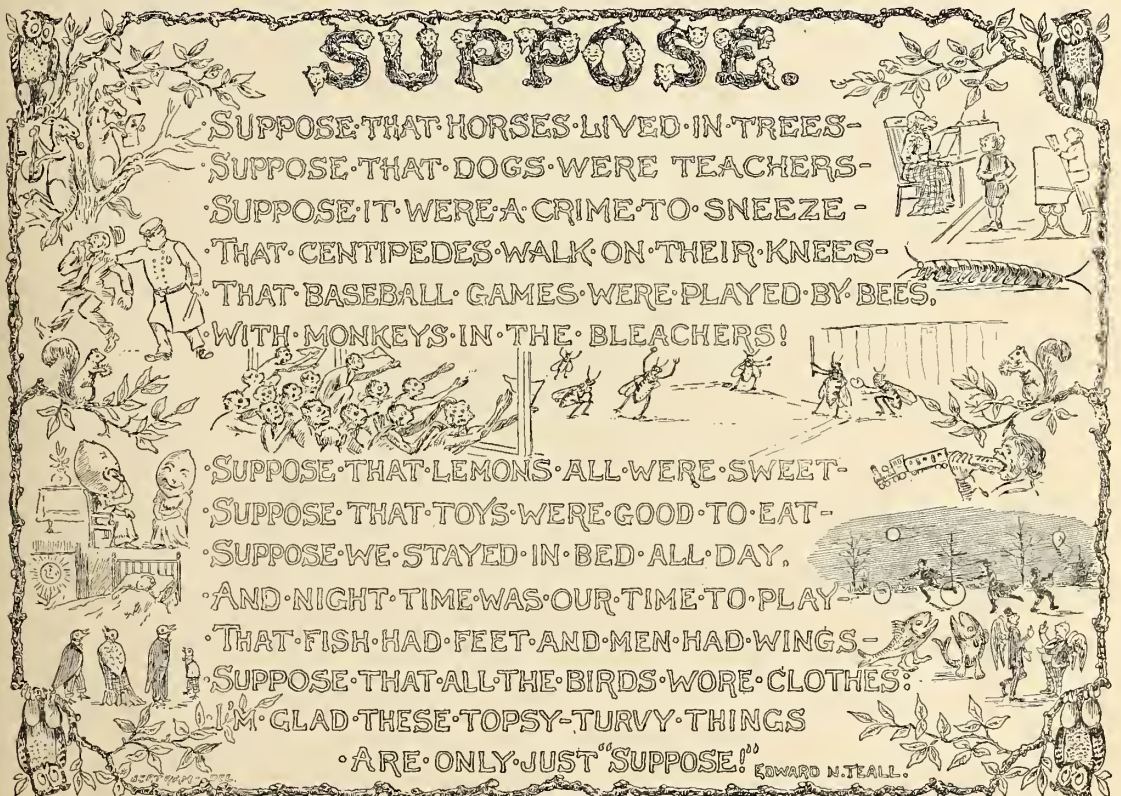 SUPPOSE.
SUPPOSE·THAT·HORSES·LIVED·IN·TREES-
SUPPOSE·THAT·DOGS·WERE TEACHERS-
SUPPOSE·IT·WERE·A·CRIME·TO·SNEEZE-
THAT·CENTIPEDES·WALK·ON·THEIR·KNEES-
THAT·BASEBALL·GAMES·WERE·PLAYED·BY·BEES,
WITH·MONKEYS·IN·THE·BLEACHERS!
SUPPOSE·THAT·LEMONS·ALL·WERE·SWEET-
SUPPOSE·THAT·TOYS·WERE·GOOD·TO·EAT-
SUPPOSE·WE·STAYED·IN·BED·ALL·DAY,
AND·NIGHT·TIME·WAS·OUR·TIME·TO·PLAY-
THAT·FISH·HAD·FEET·AND·MEN·HAD·WINGS-
SUPPOSE·THAT·ALL·THE·BIRDS·WORE·CLOTHES:
I'M·GLAD·THESE·TOPSY-TURVY·THINGS
ARE·ONLY·JUST "SUPPOSE!"
EDWARD N. TEALL.